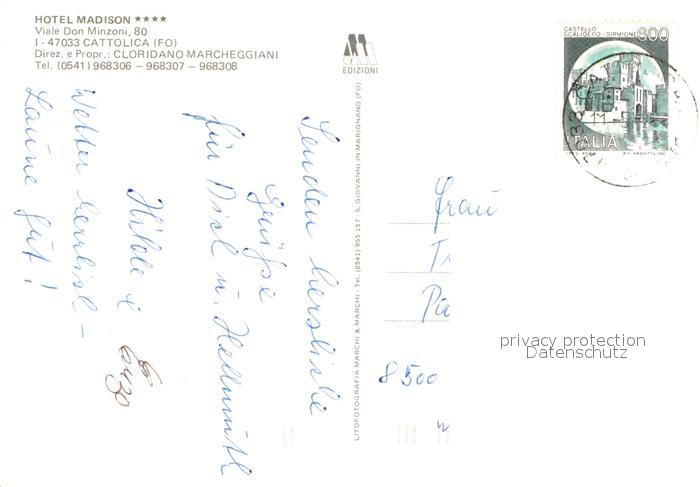 HOTEL MADISON ★★★★
Viale Don Minzoni, 80
I - 47033 CATTOLICA (FO)
Direz. e Propr.: CLORIDANO MARCHEGGIANI
Tel. (0541) 968306 – 968307 – 968308
EDIZIONI
CASTELLO
SCALIGERO - SIRMIONE
800
ITALIA
LITOFOTOGRAFIA MARCHI & MARCHI - Tel. (0541) 955 157 - S. GIOVANNI IN MARIGNANO (FO)
Senden herzliche
Grüße
für Dich u. Hellmuth
Hilde &
Wetter herrlich –
Laune gut!
Frau
8500
privacy protection
Datenschutz